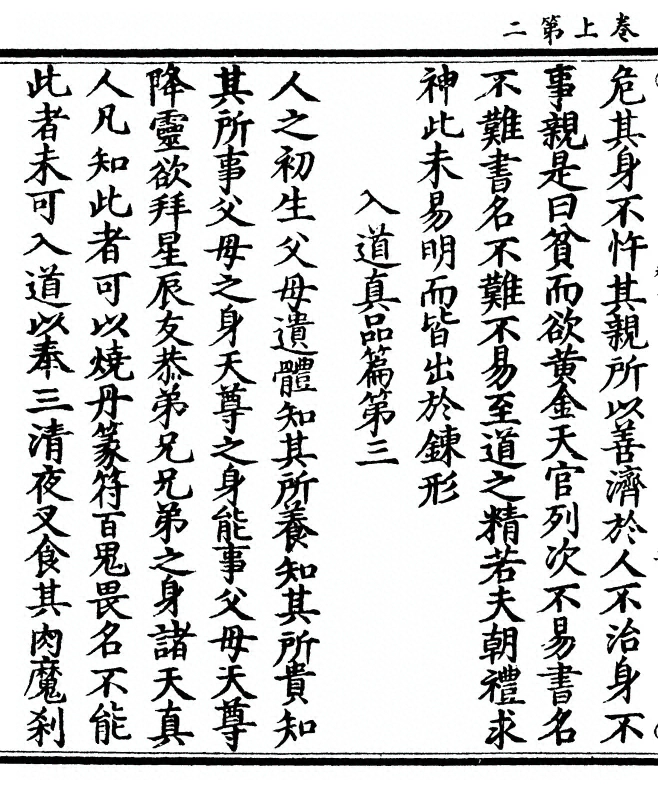 卷上第二
危其身不忤其親所以善濟於人不治身不
事親是曰貧而欲黃金天官列次不易書名
不難書名不難不易至道之精若夫朝禮求
神此未易明而皆出於鍊形
入道真品篇第三
人之初生父母遺體知其所養知其所貴知
其所事父母之身天尊之身能事父母天尊
降靈欲拜星辰友恭弟兄兄弟之身諸天真
人凡知此者可以燒丹篆符百鬼畏名不能
此者未可入道以奉三清夜叉食其肉魔剎